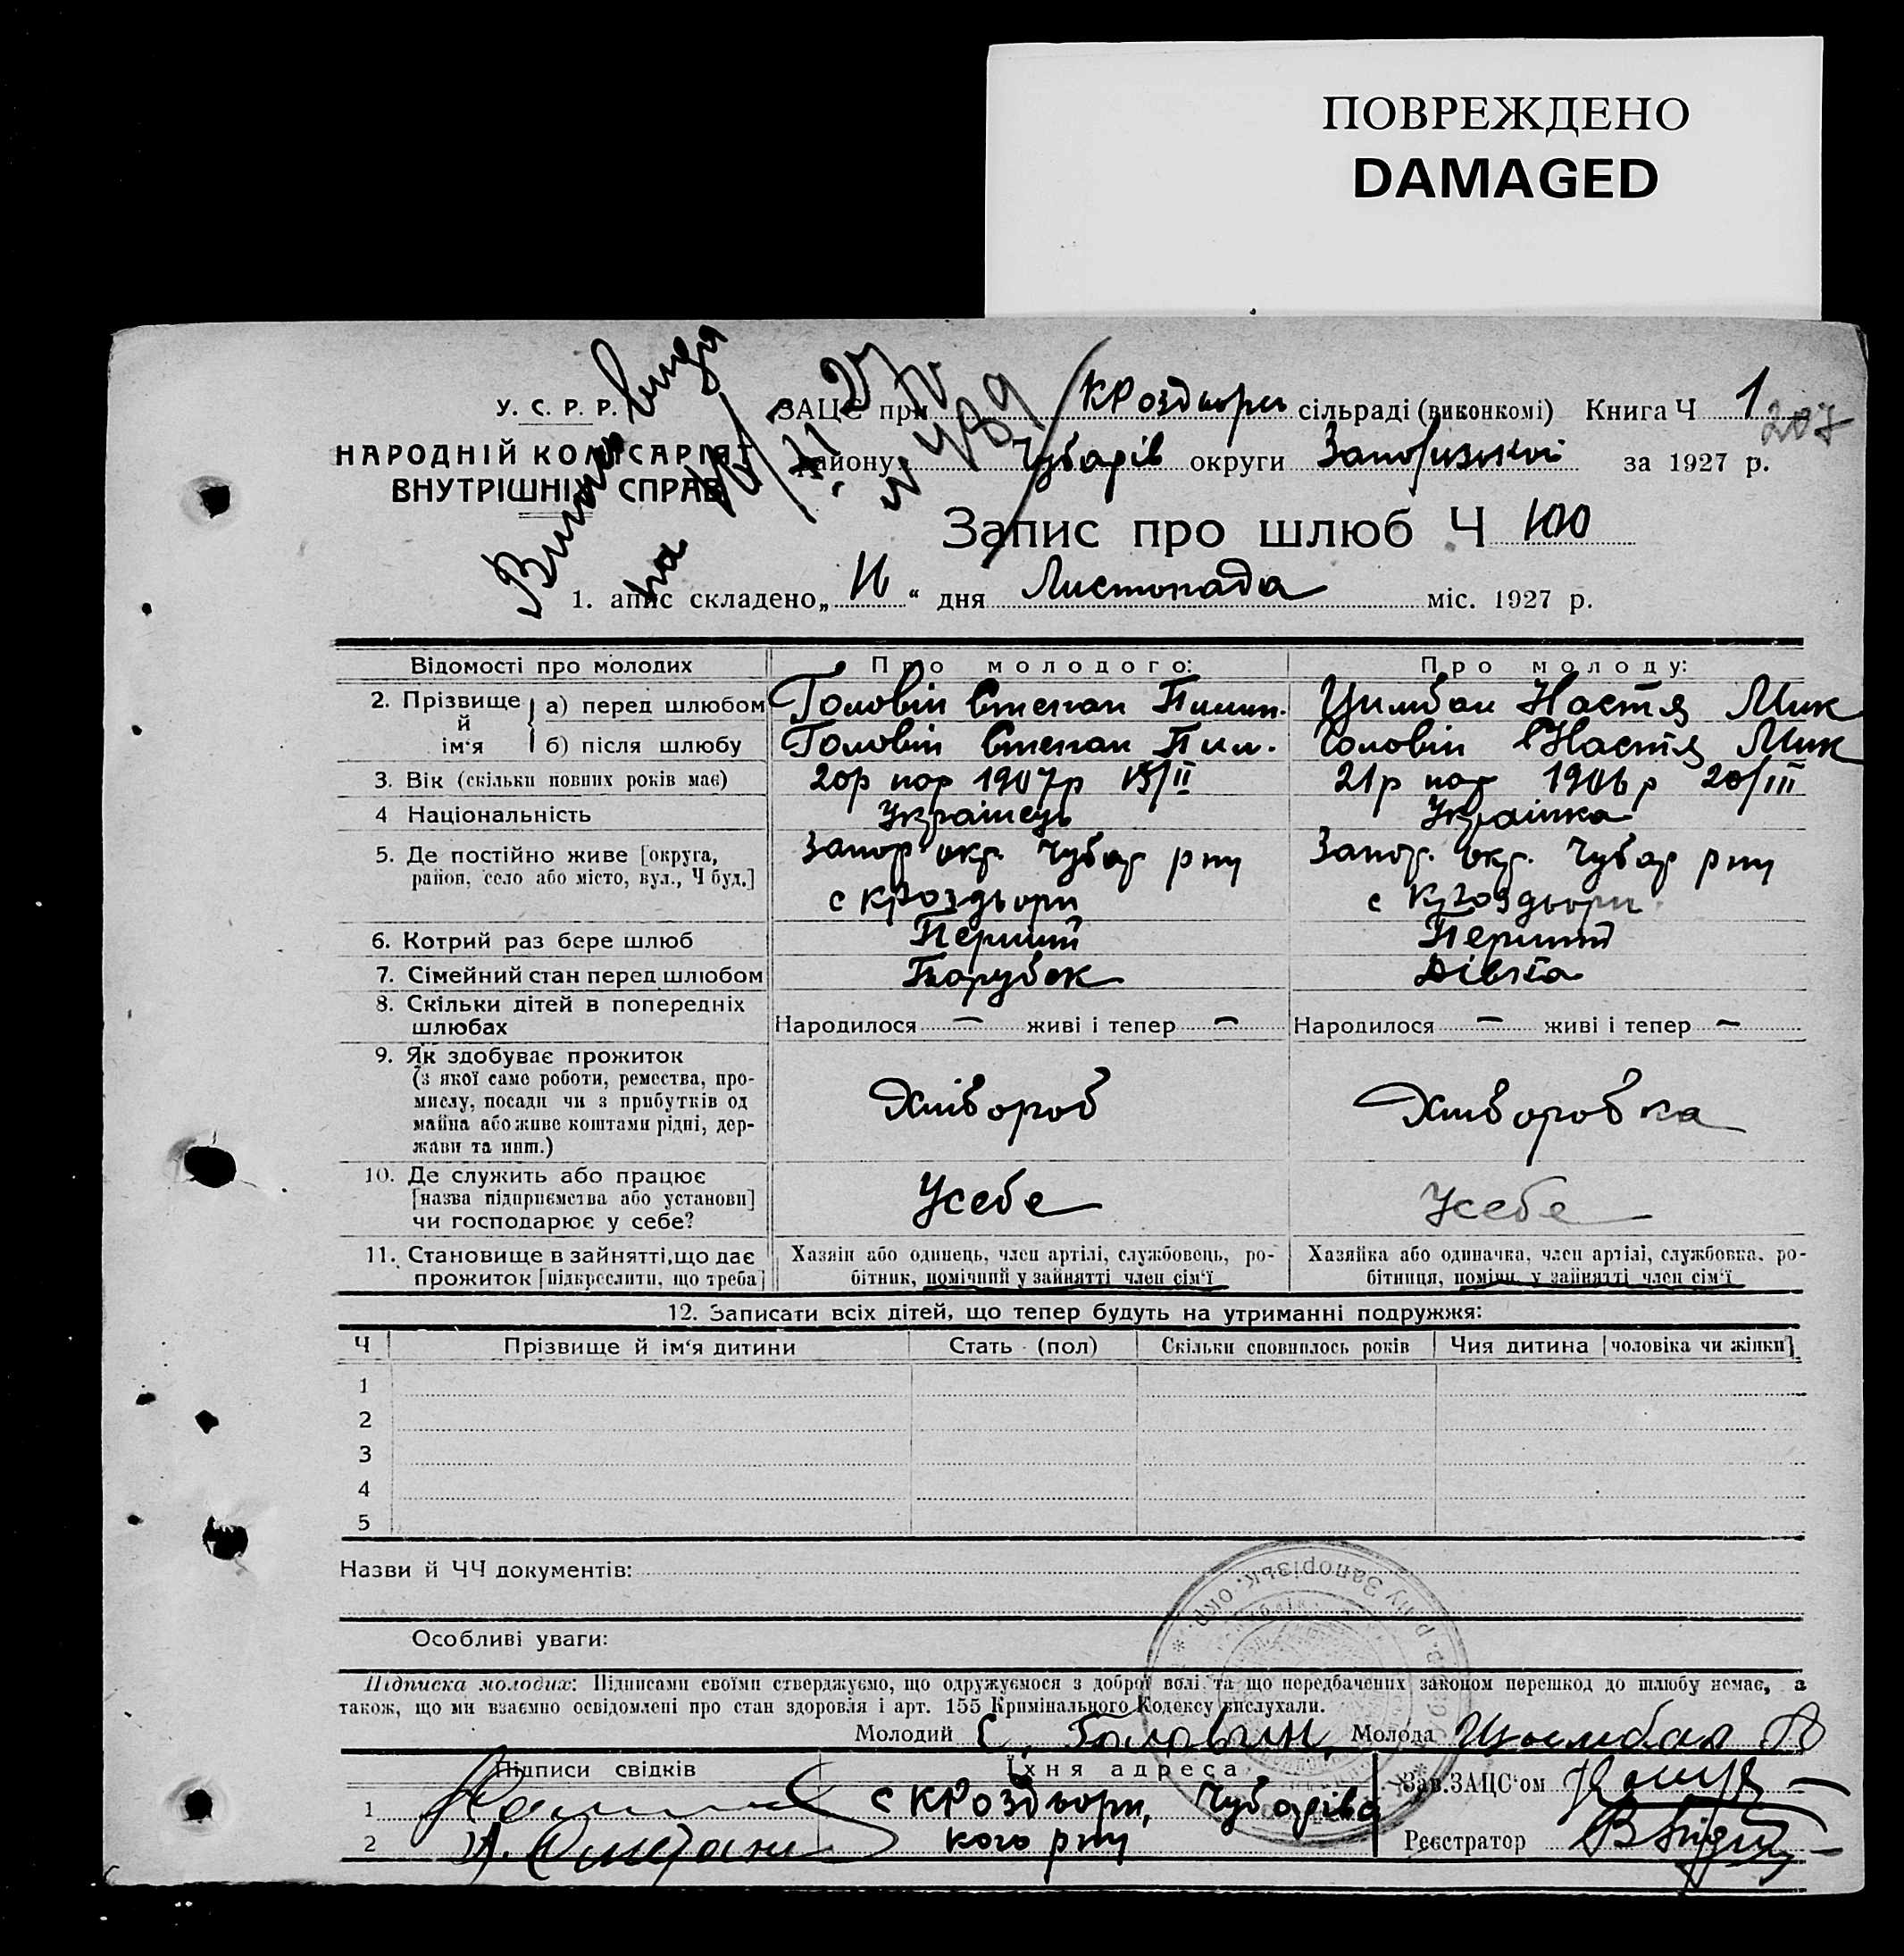 ПОВРЕЖДЕНО
DAMAGED
У. С. Р. Р.
НАРОДНІЙ КОМІСАРІЯТ
ВНУТРІШНІХ СПРАВ
ЗАЦС при КРоздори сільраді (виконкомі) Книга Ч 1
207
району Чубарів округи Запорізької за 1927 р.
Запис про шлюб Ч 100
1. апис складено „ 16 “ дня Листопада міс. 1927 р.
Відомості про молодих Про молодого: Про молоду:
2. Прізвище й ім'я а) перед шлюбом Головін Степан Пилип. Цимбал Настя Мик
б) після шлюбу Головін Степан Пил. Головін Настя Мик
3. Вік (скільки повних років має) 20р нар 1907р 15/II 21р нар 1906р 20/III
4 Національність Українець Українка
5. Де постійно живе [округа, район, село або місто, вул., Ч буд.] Запор окр. Чубар рну Запор. окр. Чубар рну
с КРоздори с КРоздори
6. Котрий раз бере шлюб Перший Перший
7. Сімейний стан перед шлюбом Парубок Дівка
8. Скільки дітей в попередніх шлюбах Народилося — живі і тепер — Народилося — живі і тепер —
9. Як здобуває прожиток
(з якої саме роботи, ремества, про-
мислу, посади чи з прибутків од
майна або живе коштами рідні, дер-
жави та инш.)
Хлібороб Хлiборобка
10. Де служить або працює
[назва підприємства або установи]
чи господарює у себе?
Усебе Усебе
11. Становище в зайнятті, що дає
прожиток [підкреслити, що треба]
Хазяїн або одинець, член артілі, службовець, ро-
бітник, помічний у зайнятті член сім'ї
Хазяйка або одиначка, член артілі, службовка, ро-
бітниця, помічн. у зайнятті член сім'ї
12. Записати всіх дітей, що тепер будуть на утриманні подружжя:
Ч Прізвище й ім'я дитини Стать (пол) Скільки сповнилось років Чия дитина [чоловіка чи жінки]
1
2
3
4
5
Назви й ЧЧ документів:
Особливі уваги:
Підписка молодих: Підписами своїми стверджуємо, що одружуємося з доброї волі та що передбачених законом перешкод до шлюбу немає, а
також, що ми взаємно освідомлені про стан здоровля і арт. 155 Кримінального Кодексу вислухали.
Молодий С. Головін Молода Цымбал
Підписи свідків Їхня адреса Зав. ЗАЦС'ом
1 с КРоздори, Чубарівс
2 кого рну Реєстратор
рну Запорізьк. окр.